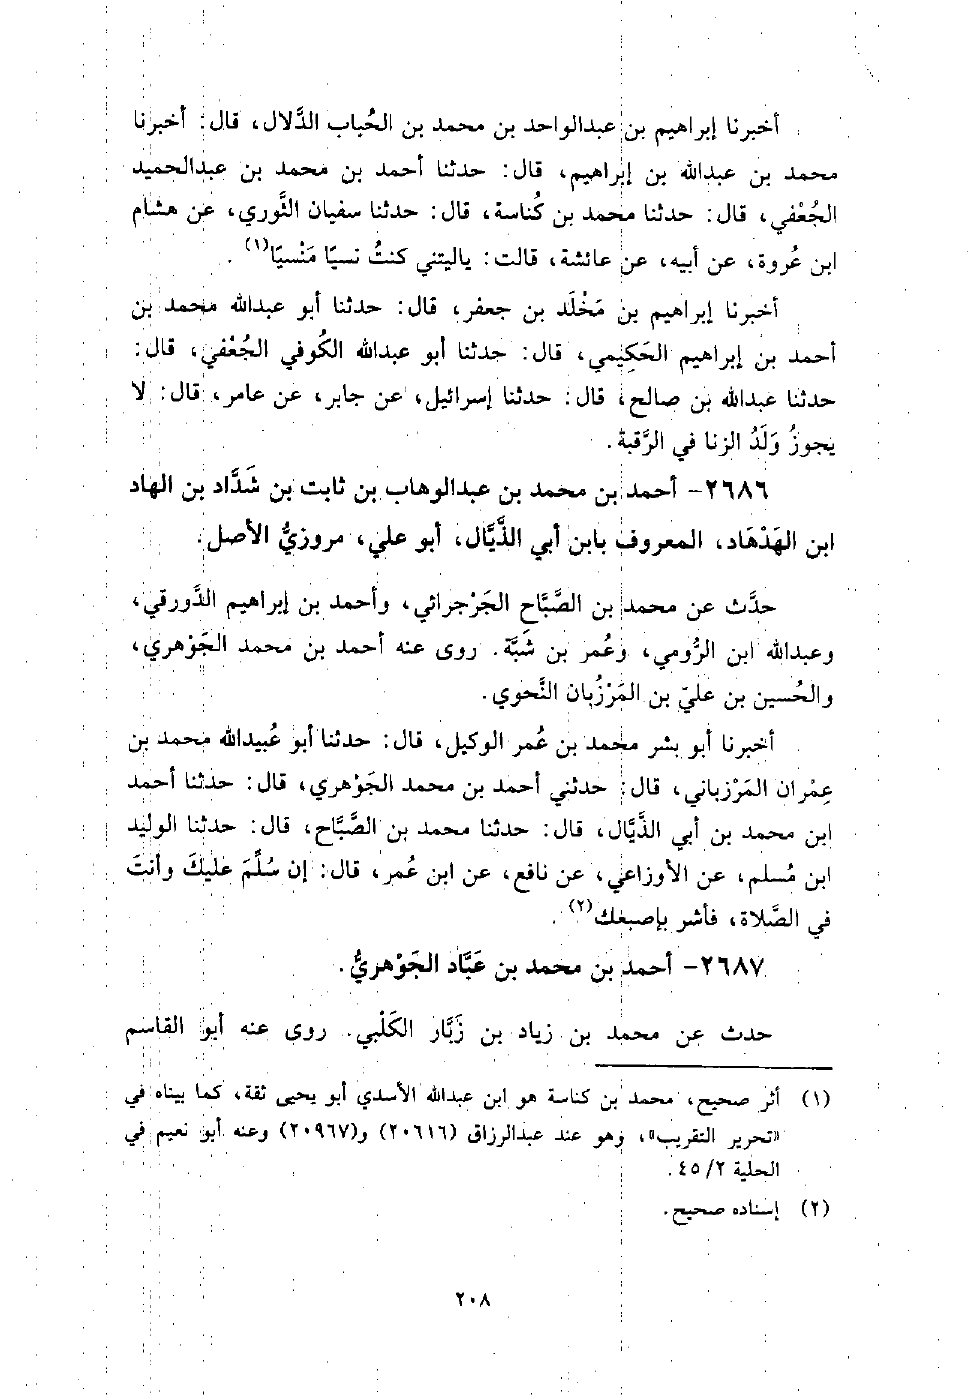 أخبرنا إبراهيم بن عبدالواحد بن محمد بن الحُباب الدَّلال، قال: أخبرنا
محمد بن عبدالله بن إبراهيم، قال: حدثنا أحمد بن محمد بن عبدالحميد
الجُعْفي، قال: حدثنا محمد بن كُناسة، قال: حدثنا سفيان الثَّوري، عن هشام
ابن عُروة، عن أبيه، عن عائشة، قالت: ياليتني كنتُ نسيًا مَنْسيًا(١).
أخبرنا إبراهيم بن مَخْلَد بن جعفر، قال: حدثنا أبو عبدالله محمد بن
أحمد بن إبراهيم الحَكِيمي، قال: حدثنا أبو عبدالله الكُوفي الجُعْفي، قال:
حدثنا عبدالله بن صالح، قال: حدثنا إسرائيل، عن جابر، عن عامر، قال: لا
يجوزُ وَلَدُ الزنا في الرَّقبة.
٢٦٨٦- أحمد بن محمد بن عبدالوهاب بن ثابت بن شَدَّاد بن الهاد
ابن الهَدْهَاد، المعروف بابن أبي الذَّيَّال، أبو علي، مروزيُّ الأصل.
حدَّث عن محمد بن الصَّبَّاح الجَرْجرائي، وأحمد بن إبراهيم الدَّورقي،
وعبدالله ابن الرُّومي، وعُمر بن شَبَّة. روى عنه أحمد بن محمد الجَوْهري،
والحُسين بن عليّ بن المَرْزُبان النَّحوي.
أخبرنا أبو بشر محمد بن عُمر الوكيل، قال: حدثنا أبو عُبيدالله محمد بن
عِمْران المَرْزباني، قال: حدثني أحمد بن محمد الجَوْهري، قال: حدثنا أحمد
ابن محمد بن أبي الذَّيَّال، قال: حدثنا محمد بن الصَّبَّاح، قال: حدثنا الوليد
ابن مُسلم، عن الأوزاعي، عن نافع، عن ابن عُمر، قال: إن سُلِّمَ عليكَ وأنتَ
في الصَّلاة، فأشر بإصبعك(٢).
٢٦٨٧- أحمد بن محمد بن عَبَّاد الجَوْهريُّ.
حدث عن محمد بن زياد بن زَبَّار الكَلْبي. روى عنه أبو القاسم
(١) أثر صحيح، محمد بن كناسة هو ابن عبدالله الأسدي أبو يحيى ثقة، كما بيناه في
«تحرير التقريب»، وهو عند عبدالرزاق (٢٠٦١٦) و(٢٠٩٦٧) وعنه أبو نعيم في
الحلية ٢/ ٤٥.
(٢) إسناده صحيح.
٢٠٨